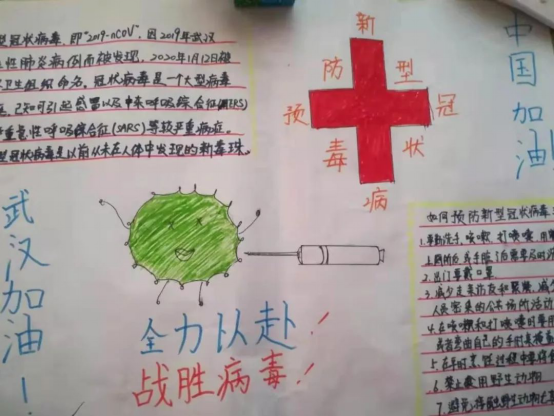 型冠状病毒，即"2019-nCoV"，因2019年武汉
性肺炎病例而被发现，2020年1月12日被
卫生组织命名。冠状病毒是一个大型病毒
已知可引起感冒以及中东呼吸综合征(MERS)
严重急性呼吸综合征(SARS)等较严重病症。
型冠状病毒是以前从未在人体中发现的新毒珠。
新
防 型
预 冠
毒 状
病
中国加油!
武汉加油!
全力以赴!
战胜病毒!
如何预防新型冠状病毒
1.勤洗手，咳嗽，打喷嚏
2.出门要戴口罩
3.减少走亲访友和聚餐，减少
人员密集的公共场所活动
4.在咳嗽和打喷嚏时要用
5.在平时烹饪过程中要
6.禁止食用野生动物
7.避免接触野生动物